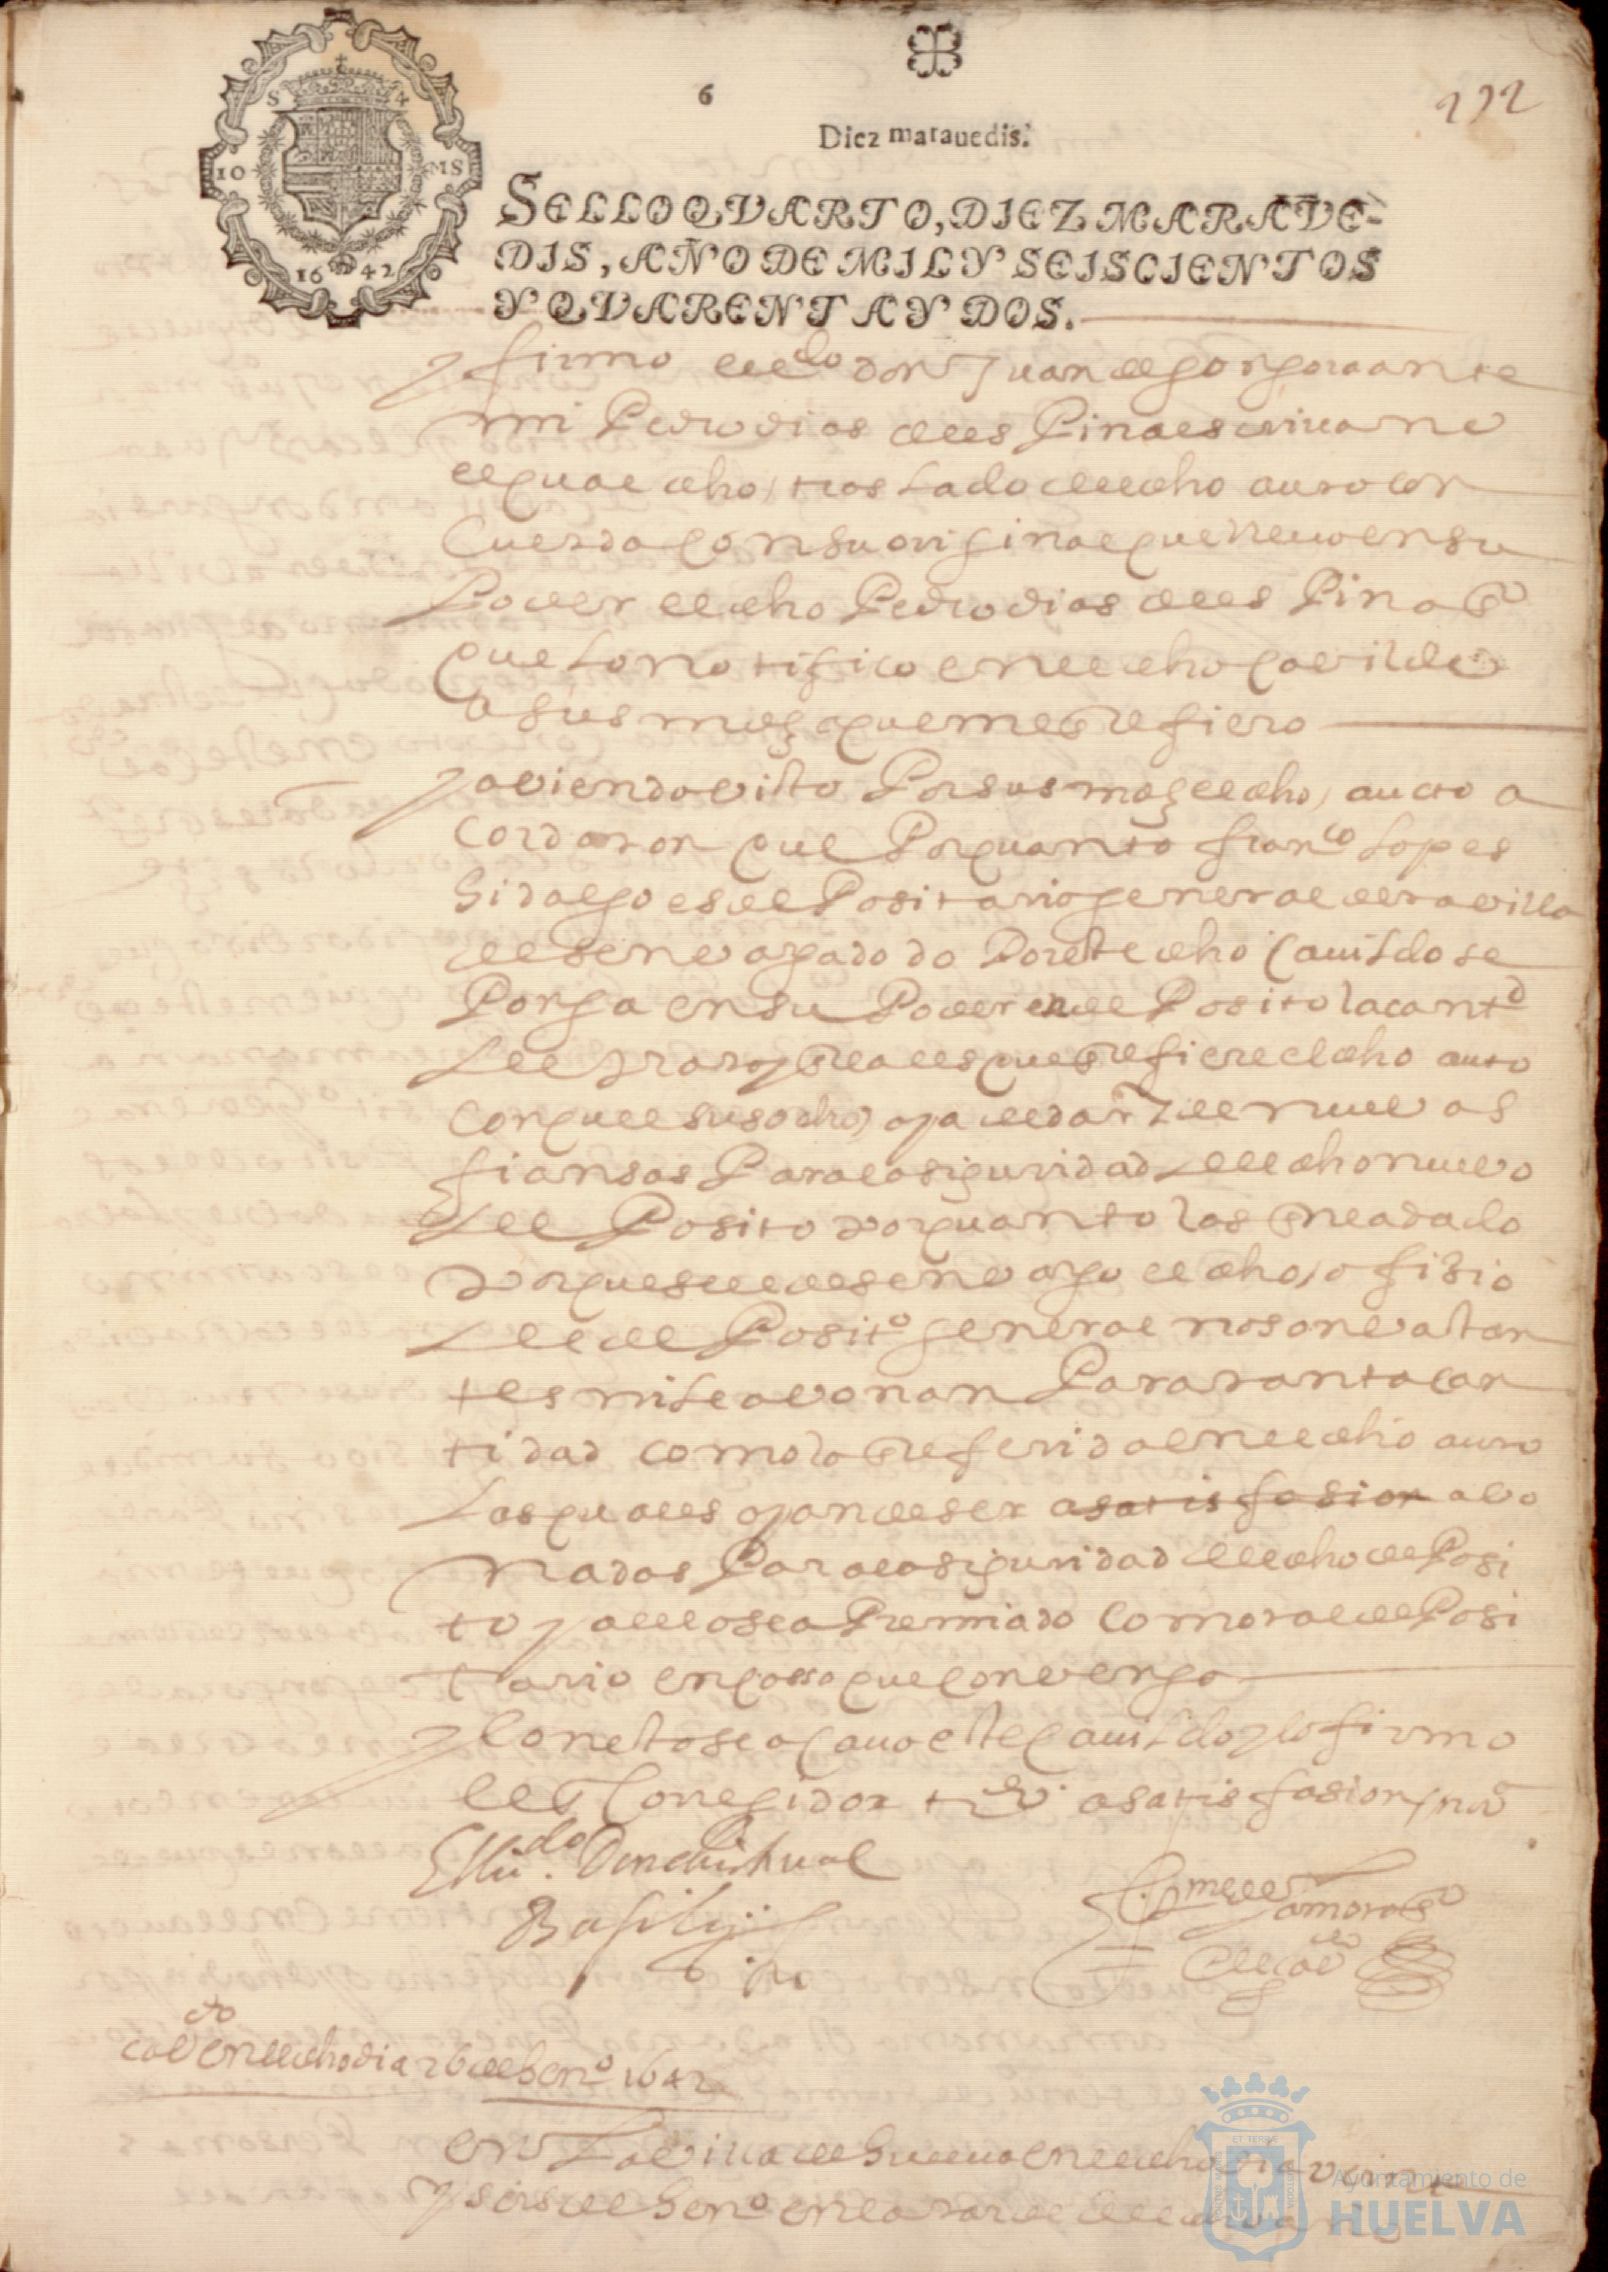 6
192
Diez marauedis.
S 4
10 MS
1642
SELLO QVARTO, DIEZ MARAVE-
DIS, AÑO DE MIL Y SEISCIENTOS
Y QVARENTA Y DOS.
y firmo el ldo don Juan de gongora ante
mi Pedro dias del es Pina escrivano
el qual dho, traslado del dho auto con
Cuerda con su original que llevo en su
Poder el dho Pedro dias del es Pina
que lo notifico en el dho cavildo
a sus mds a que me Refiero
y aviendo visto Por sus mds el dho, aucto a
cordaron que Porquanto franco Lopes
hidalgo es de Positario general desta villa
de se ne Por este dho Cavildo se
Ponga en su Poder en de Posito la cantd
del trato y Reales que Refiere el dho auto
con que el susodho, aya de dar de nuevo as
fiansas Para la siguridad del dho nuevo
de Posito Porquanto las que a dado
Porque se le el dho, ofisio
de de Posito general no son bastan
tes ni le avonan Para tanta can
tidad como la Referida en el dho auto
Las quales ayan de ser asatisfasion abo
nadas Para la siguridad del dho de Posi
to y a ello sea Premiado como tal de Posi
tario en caso que convenga
y Con esto se acavo este Cavildo y lo firmo
el Corregidor tdo asatisfasion, no
El licdo Don Christoual
Basili
Zamora
del cavdo
cavdo en el dho dia 26 de heno 1642
en La villa de huelva en el dho dia veinte
y seis de heno en la tarde
Ayuntamiento de
HUELVA